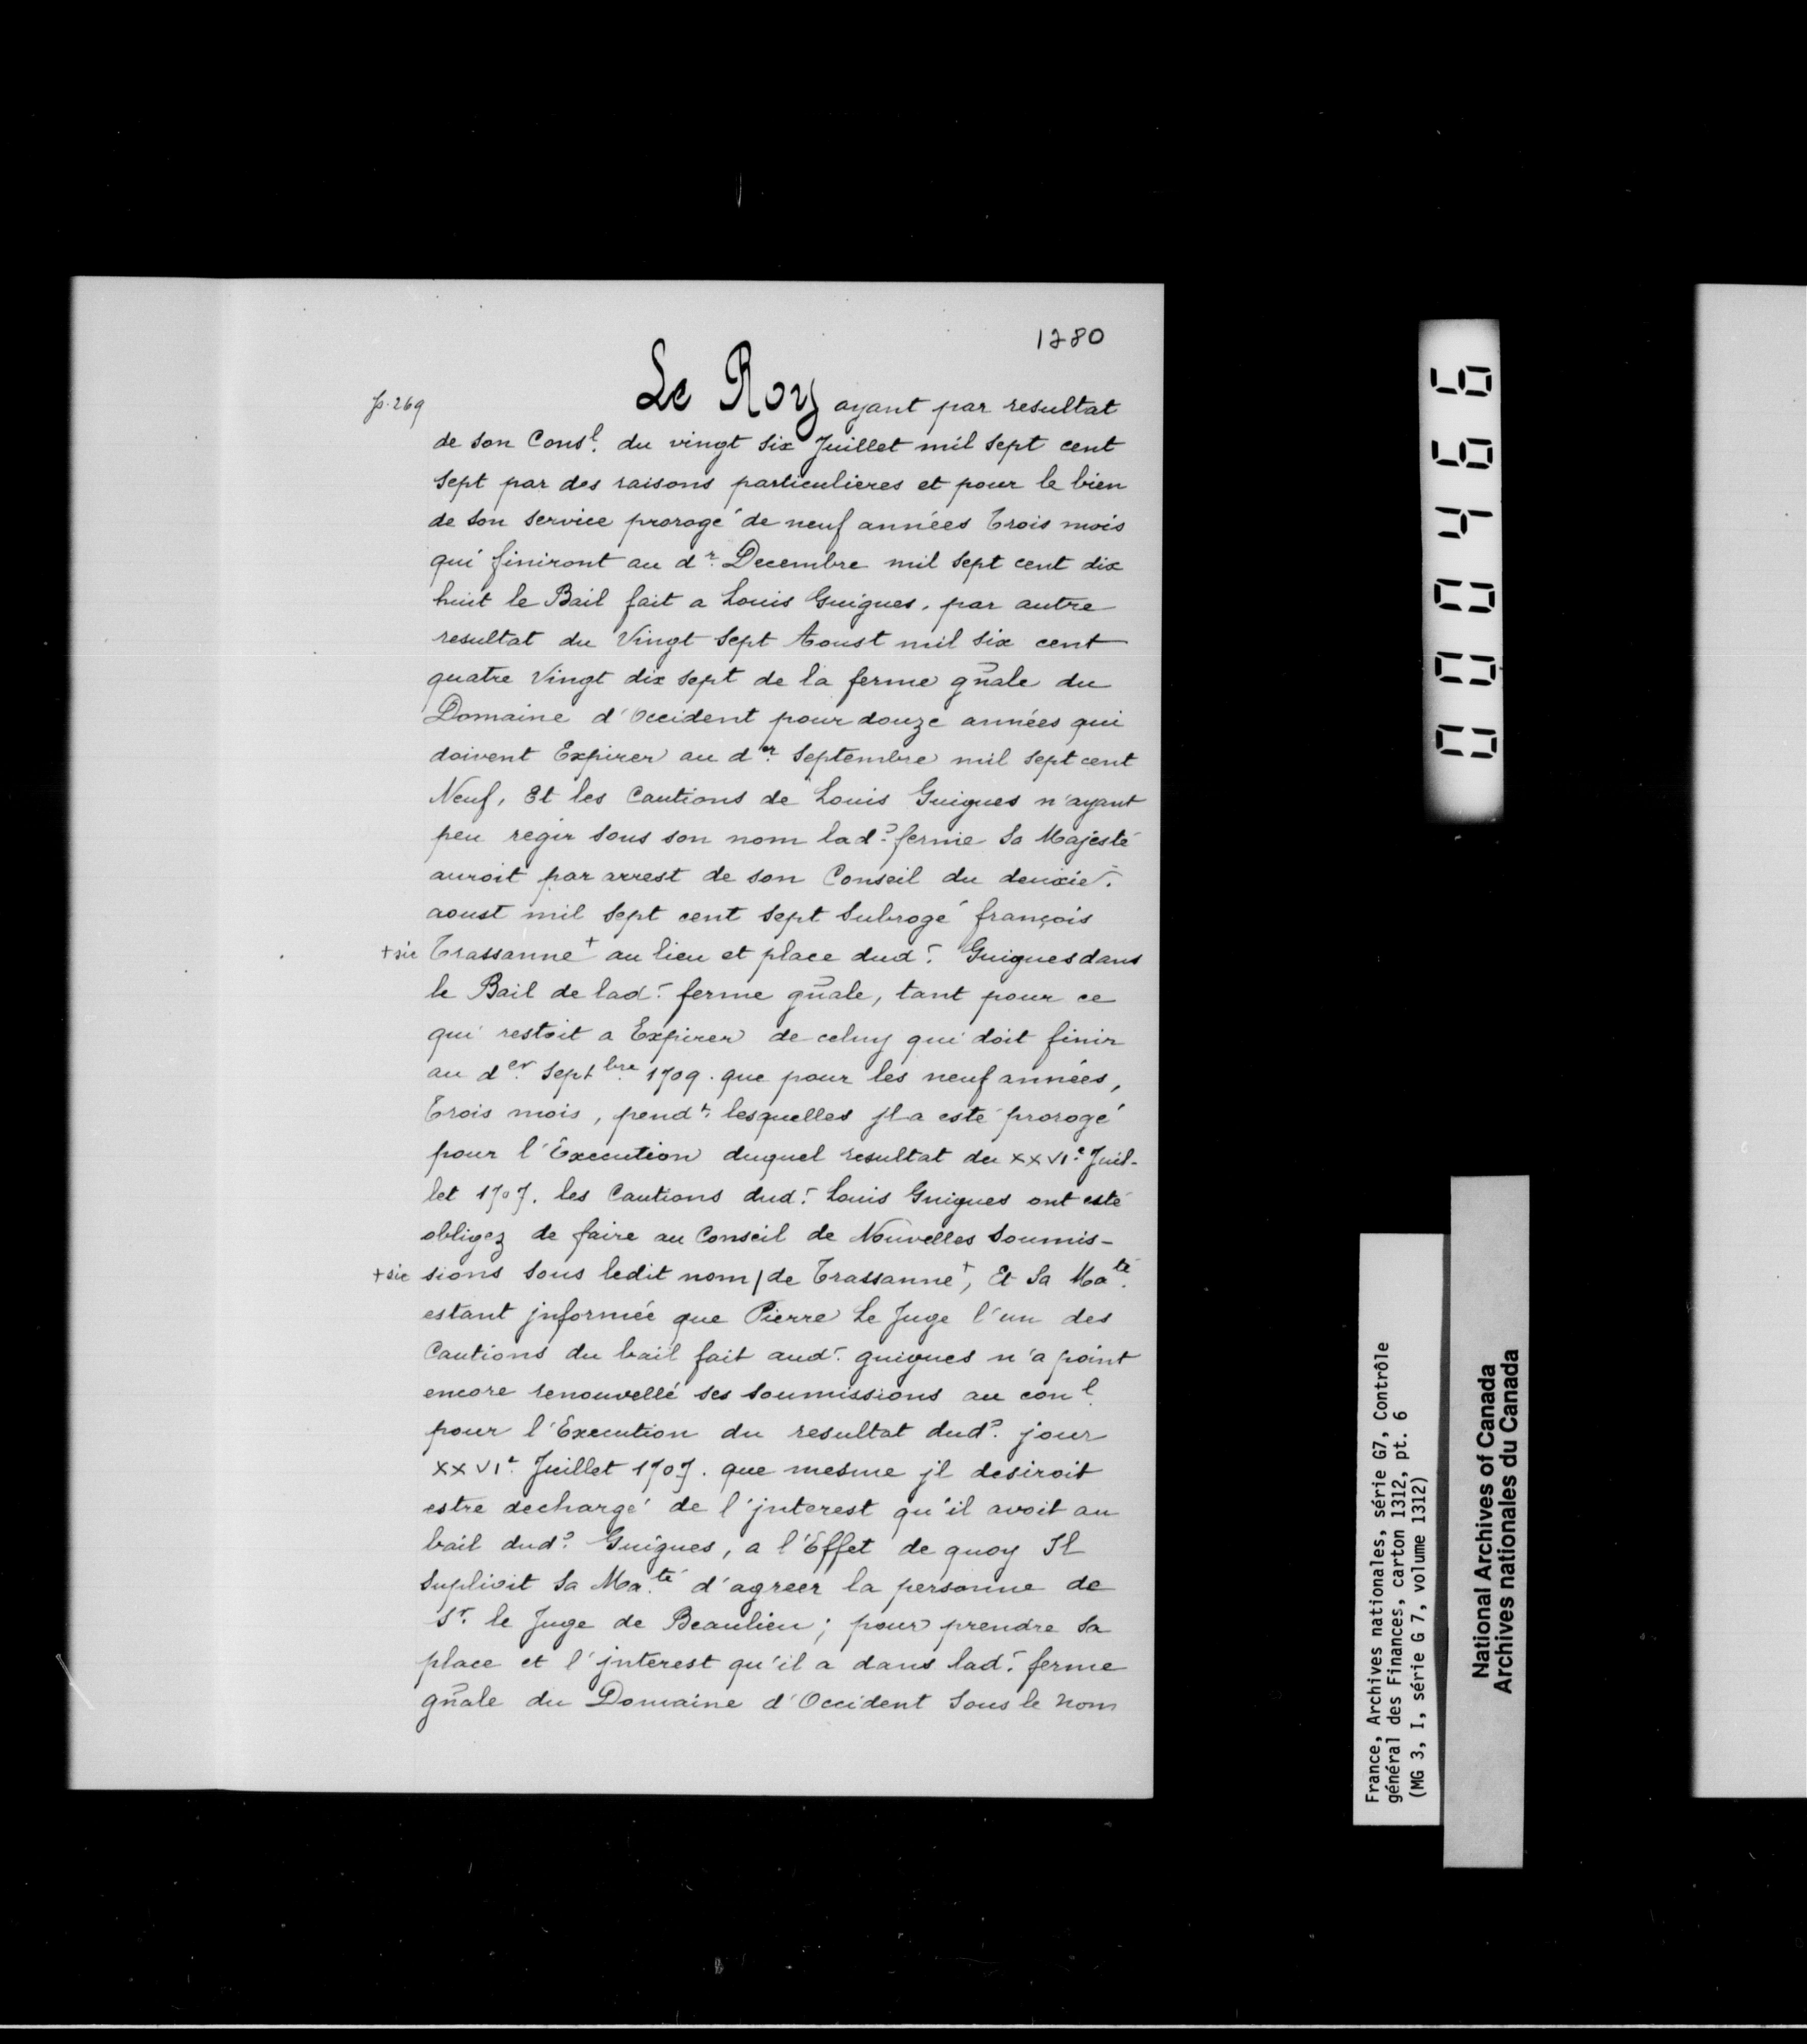 1280
p. 269
Le Roy ayant par resultat
de son Consl. du vingt six Juillet mil sept cent
sept par des raisons particulieres et pour le bien
de son service prorogé de neuf années trois mois
qui finiront au dr. Decembre mil sept cent dix
huit le Bail fait a Louis Guigues, par autre
resultat du Vingt Sept Aoust mil six cent
quatre Vingt dix sept de la ferme gñale du
Domaine d'Occident pour douze années qui
doivent Expirer au der. Septembre mil sept cent
Neuf, Et les Cautions de Louis Guigues n'ayant
peu regir sous son nom lad.e ferme Sa Majesté
auroit par arrest de son Conseil du deuxie.
aoust mil sept cent sept subrogé françois
+sic Trassanne+ au lieu et place dud.t Guigues dans
le Bail de lad.t ferme gñale, tant pour ce
qui restoit a Expirer de celuy qui doit finir
au der. Septbre. 1709. que pour les neuf années,
Trois mois, pendt. lesquelles jl a esté prorogé
pour l'Execution duquel resultat du XXVIe. Juil-
let 1707. les Cautions dud.t Louis Guigues ont esté
obligez de faire au Conseil de Nouvelles Soumis-
+sic sions sous ledit nom/de Trassanne+, Et Sa Maté.
estant jnformée que Pierre Le Juge l'un des
Cautions du bail fait aud.t guigues n'a point
encore renouvellé ses soumissions au conl.
pour l'Execution du resultat dud.? jour
XXVIe. Juillet 1707. que mesme jl desiroit
estre dechargé de l'jnterest qu'il avoit au
bail dud.? Guigues, a l'Effet de quoy Il
suplioit Sa Ma.té d'agreer la personne de
Sr. le Juge de Beaulieu; pour prendre sa
place et l'jnterest qu'il a dans lad.t ferme
gñale du Domaine d'Occident sous le nom
000466
France, Archives nationales, série G7, Contrôle
général des Finances, carton 1312, pt. 6
(MG 3, I, série G 7, volume 1312)
National Archives of Canada
Archives nationales du Canada